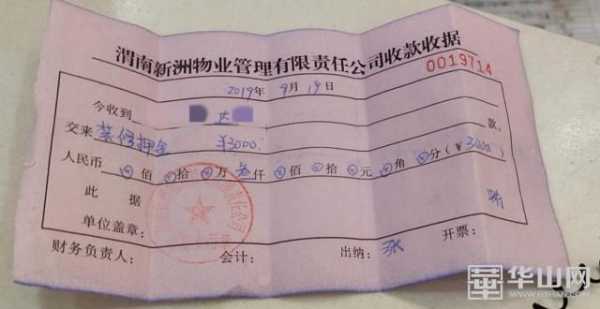 渭南新洲物业管理有限责任公司收款收据
0019714
2019年 9月 19日
今收到 达 款,
交来 装修押金 ¥3000.
人民币 ⊗佰 ⊗拾 ⊗万 叁仟 ⊗佰 ⊗拾 ⊗元 ⊗角 ⊗分(¥ 3000 )
此 据
单位盖章:
财务负责人: 会计: 出纳: 张 开票:
華 华山网